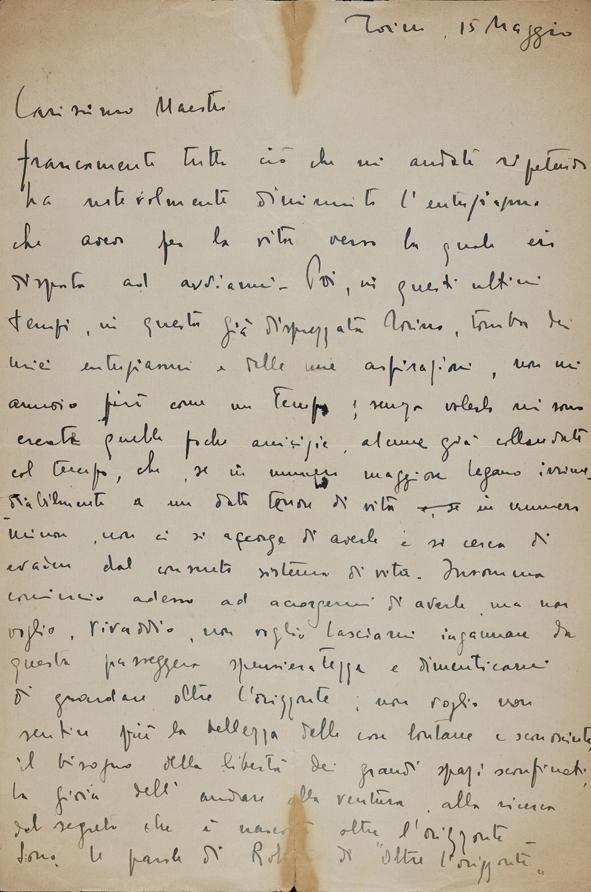 Torino, 15 Maggio
Carissimo Maestro
francamente tutto ciò che mi andate ripetendo
ha notevolmente diminuito l'entusiasmo
che avevo per la vita verso la quale ero
disposto ad avviarmi - Poi, in questi ultimi
tempi, in questa già disprezzata Torino, tomba dei
miei entusiasmi e delle mie aspirazioni, non mi
annoio più come un tempo; senza volerlo mi sono
create quelle poche amicizie, alcune già collaudate
col tempo, che, se in numero maggiore legano irrime-
diabilmente a un dato tenore di vita in numero
minore, non ci si accorge di averle e si cerca di
evadere dal consueto sistema di vita. Insomma
comincio adesso ad accorgermi di averle, ma non
voglio, vivaddio, non voglio lasciarmi ingannare da
questa passeggera spensieratezza e dimenticarmi
di guardare oltre l'orizzonte; non voglio non
sentire più la bellezza delle cose lontane e sconosciute,
il bisogno della libertà dei grandi spazi sconfinati,
la gioia dell'andare alla ventura, alla ricerca
del segreto che è nascosto oltre l'orizzonte
Sono le parole di di "Oltre l'orizzonte"